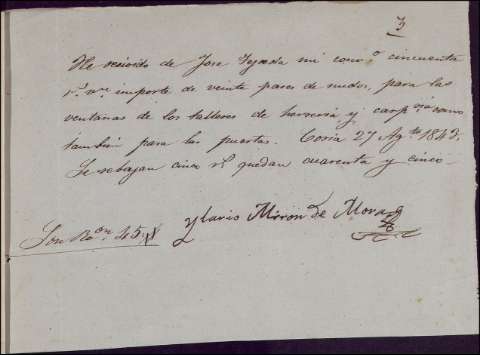 3
He recivido de Jose Tejada mi conv.º cincuenta
r.s v.n importe de veinte pares de nudos, para las
ventanas de los talleres de herreria y carp.ria como
tambien para las puertas. Coria 27 Ag.to 1843.
Se rebajan cinco r.s quedan cuarenta y cinco
Ylario Moron de Mora
Son R.s v.n 45